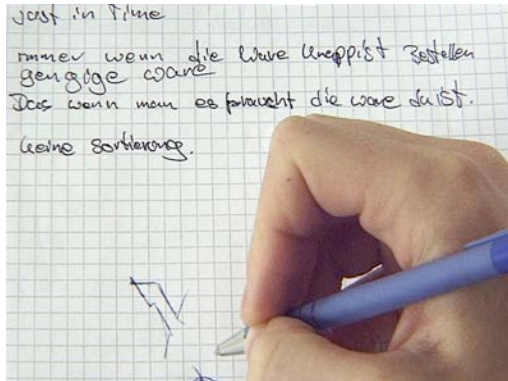 Jast in Time
immer wenn die Ware knappist Bestellen
gengige ware
Das wenn man es braucht die ware da ist.
keine Sortierung.